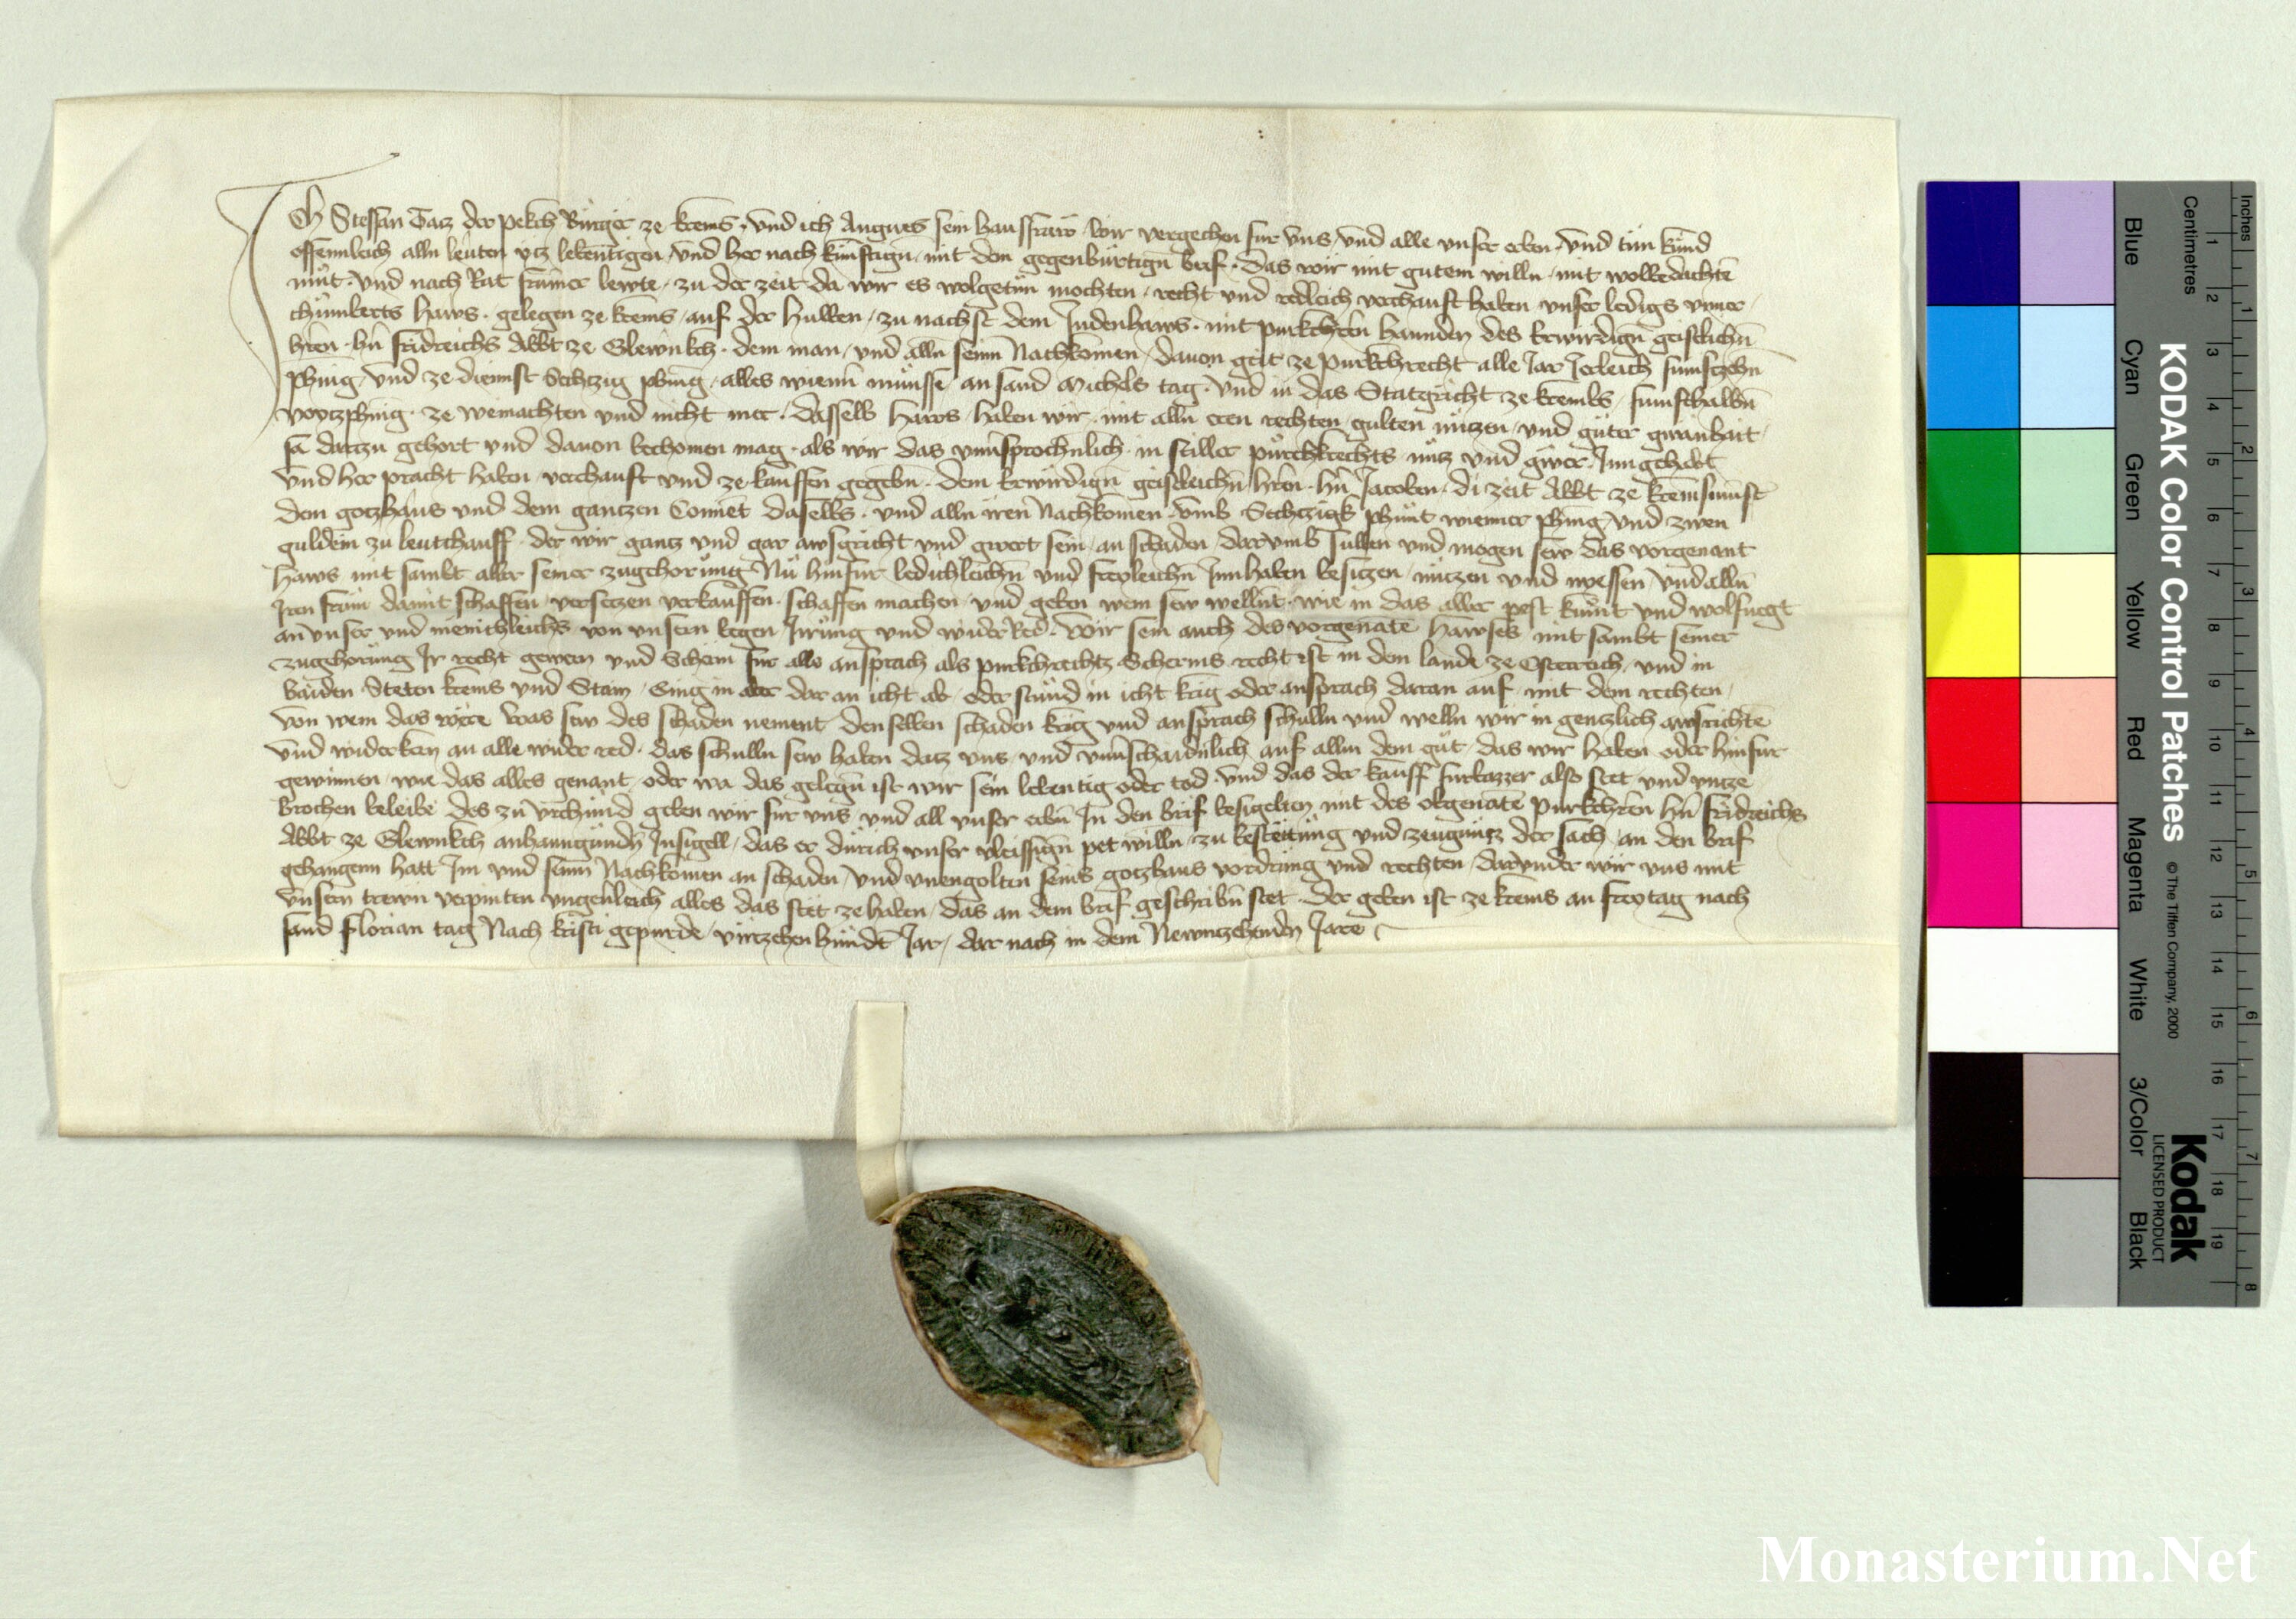 Ich Steffan Tacz der pekch Burger ze krems, vnd ich Angnes sein hausfraw wir vergechen fur vns vnd alle vnser erben, vnd tun kund
offennleich alln leuten ytz lebentigen vnd her nach kunftign mit dem gegenburtign brif, das wir mit gutem willn mit wolbedachtē
mut, vnd nach Rat frumer lewte, zu der zeit da wir es wolgetun mochten, recht vnd redleich verchauft haben vnser ledigs vnuer
chumberts haws, gelegen ze krems auf der hulben zu nachst dem Judenhaws, mit purkchrēn hannden des Erwirdign geistlichn
hren, hn fridreichs Abbt ze Glewnkch, dem man, vnd alln seinn Nachkomen, dauon geit ze purkchrecht alle Jar Jerleich funfczehn
phnīg, vnd ze diennst Sechtzig phnīg, alles wienn munsse an sand Michels tag, vnd in das Statgricht ze krembs funfthalbn
voytzphnīg, ze weinachten vnd nicht mer, dasselb haws haben wir mit alln eren rechten gulten nuczen vnd guter gwanhait,
sa dartzu gehort vnd dauon bechomen mag, als wir das vnuersprochnlich in stiller purchkrechts nucz vnd gwer Jnngehabt
vnd her pracht haben verchauft vnd ze kauffen gegebn, dem Erwirdign geistleichn hren, hn Jacoben, di zeit Abbt ze kremsmunst
dem gotzhaus vnd dem gantzen Conuēt daselbs, vnd alln iren Nachkomen, vmb Sechczigk phunt wienner phnīg vnd zwen
guldein zu leutchauff, der wir gantz vnd gar awsgricht vnd gwert sein an schaden, darvmb sullen vnd mogen sew das vorgenant
haws mit sambt aller seiner zugehorung Nu hinfur ledichleichn vnd freyleichn Jnnhaben besitzen, nutzen vnd niessen vnd alln
Iren frum damit schaffen versetzen verkauffen, schaffen machen, vnd geben wem sew wellnt, wie in das aller pest kumt vnd wolfuegt
an vnser vnd menichleichs von vnsern wegen Jrrung vnd wider Red, Wir sein auch des vorgenāte hawses mit sambt seiner
zugehorung Ir recht gewern vnd Scherm fur alle ansprach als purkchrechtz Scherms recht ist in dem lande ze Osterreich, vnd in
baiden Steten krems vnd Stain, Ging in aber dar an icht ab, oder stund in icht krig oder ansprach daran auf, mit dem rechten,
von wem das were was sew des schaden nement denselben schaden krig vnd ansprach schulln vnd welln wir in gentzlich awsrichtē
vnd widerkern an alle wider red, das schulln sew haben datz vns vnd vnuerschaidnlich auf allm dem gut, das wir haben oder hinfur
gewinnen, wie das alles genant, oder wa das gelegn ist wir sein lebentig oder tod, vnd das der kauff furbazzer also stet vnd vntze
brochen beleibe des zu vrchund geben wir fur vns vnd all vnser erbn In den brif besigelten mit des obgenātē purkchrēn hn fridreichs
Abbt ze Glewnkch anhanngundn Insigell, das er durich vnser vleissign pet willn, zu bestettung vnd zeugnucz der sach, an den brif
gehangenn hatt Im vnd seinn Nachkomen an schaden, vnd vnengolten seins gotzhaus vordrung vnd rechten, darvnder wir vns mit
vnsern trewn verpinten vngeuerleich alles das stet ze haben, das an dem brif geschribn stet, der geben ist ze krems an freytag nach
sand florian tag Nach kristi gepurde, virtzehenhundt Jar, dar nach in dem Newntzehendn Jare
KODAK Color Control Patches
© The Tiffen Company, 2000
Kodak
LICENSED PRODUCT
Blue Cyan Green Yellow Red Magenta White 3/Color Black
Inches 1 2 3 4 5 6 7 8
Centimetres 1 2 3 4 5 6 7 8 9 10 11 12 13 14 15 16 17 18 19
Monasterium.Net